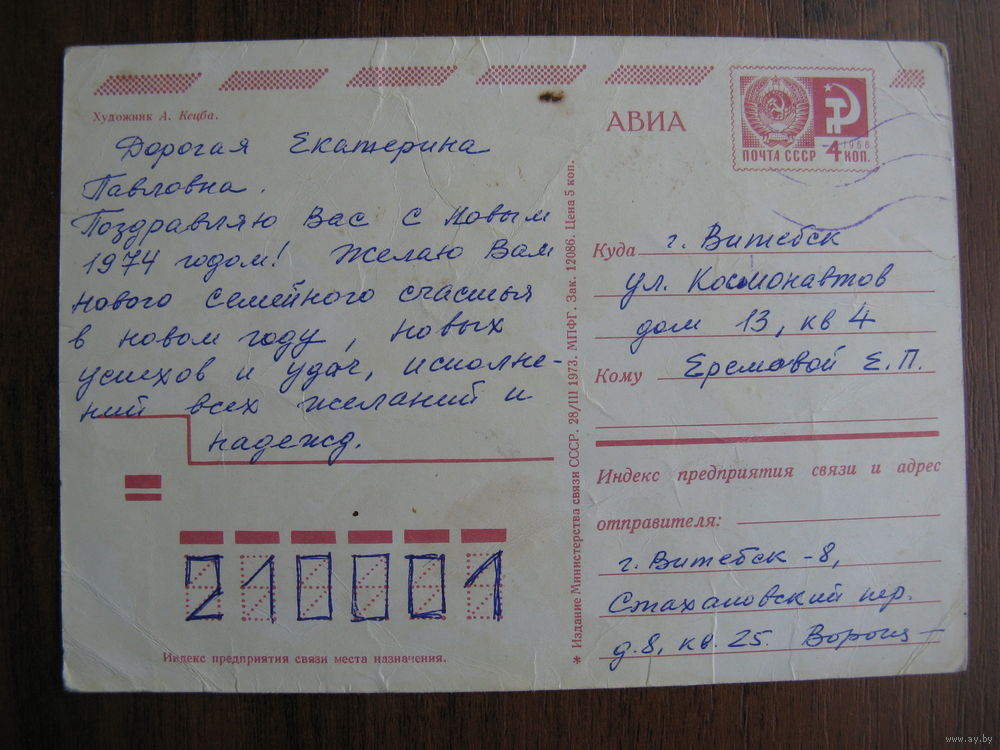 Художник А. Кецба.
Дорогая Екатерина
Павловна.
Поздравляю Вас с Новым
1974 годом! Желаю Вам
нового семейного счастья
в новом году, новых
успехов и удач, исполне-
ний всех желаний и
надежд.
210001
Индекс предприятия связи места назначения.
* Издание Министерства связи СССР. 28/III 1973. МПФГ. Зак. 12086. Цена 5 коп.
АВИА
ПОЧТА СССР 4 КОП.
1966
Куда г. Витебск
ул. Космонавтов
дом 13, кв 4
Кому Еремовой Е.П.
Индекс предприятия связи и адрес
отправителя:
г. Витебск -8,
Стахановский пер.
д.8, кв. 25.
www.ay.by